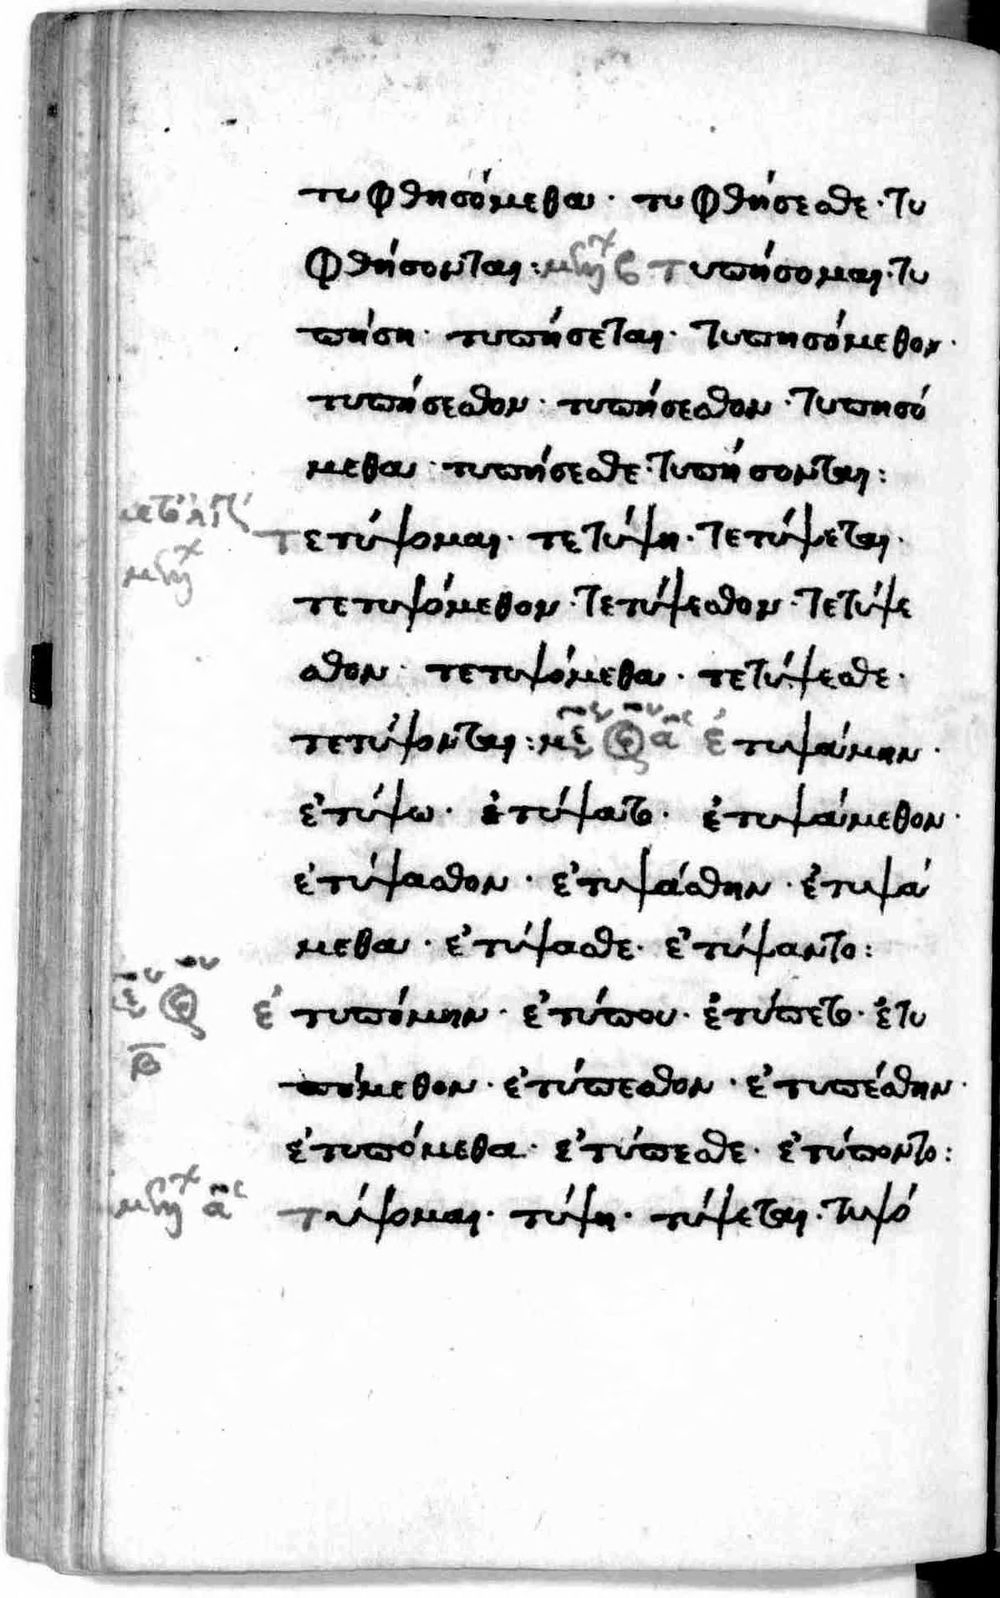 τυφθησόμεθα · τυφθήσεσθε · τυ
φθήσονται : β τυπήσομαι · τυ
πήση · τυπήσεται · τυπησόμεθον ·
τυπήσεσθον · τυπήσεσθον · τυπησό
μεθα · τυπήσεσθε · τυπήσονται :
τετύψομαι · τετύψη · τετύψεται ·
τετυψόμεθον · τετύψεσθον · τετύψε
σθον · τετυψόμεθα · τετύψεσθε ·
τετύψονται : ἐτυψάμην ·
ἐτύψω · ἐτύψατο · ἐτυψάμεθον ·
ἐτύψασθον · ἐτυψάσθην · ἐτυψά
μεθα · ἐτύψασθε · ἐτύψαντο :
ἐτυπόμην · ἐτύπου · ἐτύπετο · ἐτυ
β
πόμεθον · ἐτύπεσθον · ἐτυπέσθην ·
ἐτυπόμεθα · ἐτύπεσθε · ἐτύποντο :
τύψομαι · τύψη · τύψεται · τυψό